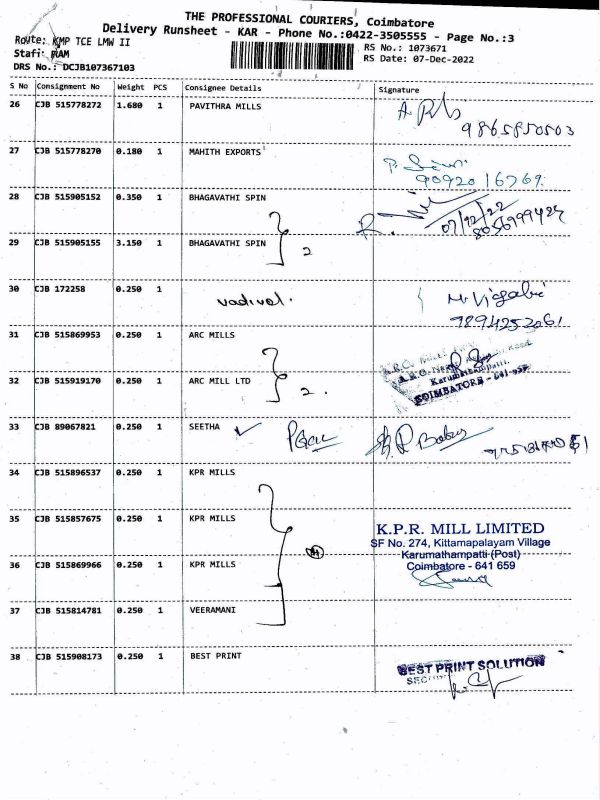 THE PROFESSIONAL COURIERS, Coimbatore
Delivery Runsheet - KAR - Phone No.:0422-3505555 - Page No.:3
Route: KMP TCE LMW II
RS No.: 1073671
Staff: RAM
RS Date: 07-Dec-2022
DRS No.: DCJB107367103
S No Consignment No Weight PCS Consignee Details Signature
26 CJB 515778272 1.680 1 PAVITHRA MILLS
9865850503
27 CJB 515778270 0.180 1 MAHITH EXPORTS
9092016769
28 CJB 515905152 0.350 1 BHAGAVATHI SPIN
07/12/22
8056999424
29 CJB 515905155 3.150 1 BHAGAVATHI SPIN
2
30 CJB 172258 0.250 1 vadivel.
9894252061
31 CJB 515869953 0.250 1 ARC MILLS
32 CJB 515919170 0.250 1 ARC MILL LTD
2.
Karumathampatti.
COIMBATORE - 641 659
33 CJB 89067821 0.250 1 SEETHA
34 CJB 515896537 0.250 1 KPR MILLS
35 CJB 515857675 0.250 1 KPR MILLS
K.P.R. MILL LIMITED
SF No. 274, Kittamapalayam Village
Karumathampatti (Post)
Coimbatore - 641 659
36 CJB 515869966 0.250 1 KPR MILLS
37 CJB 515814781 0.250 1 VEERAMANI
38 CJB 515908173 0.250 1 BEST PRINT
BEST PRINT SOLUTION